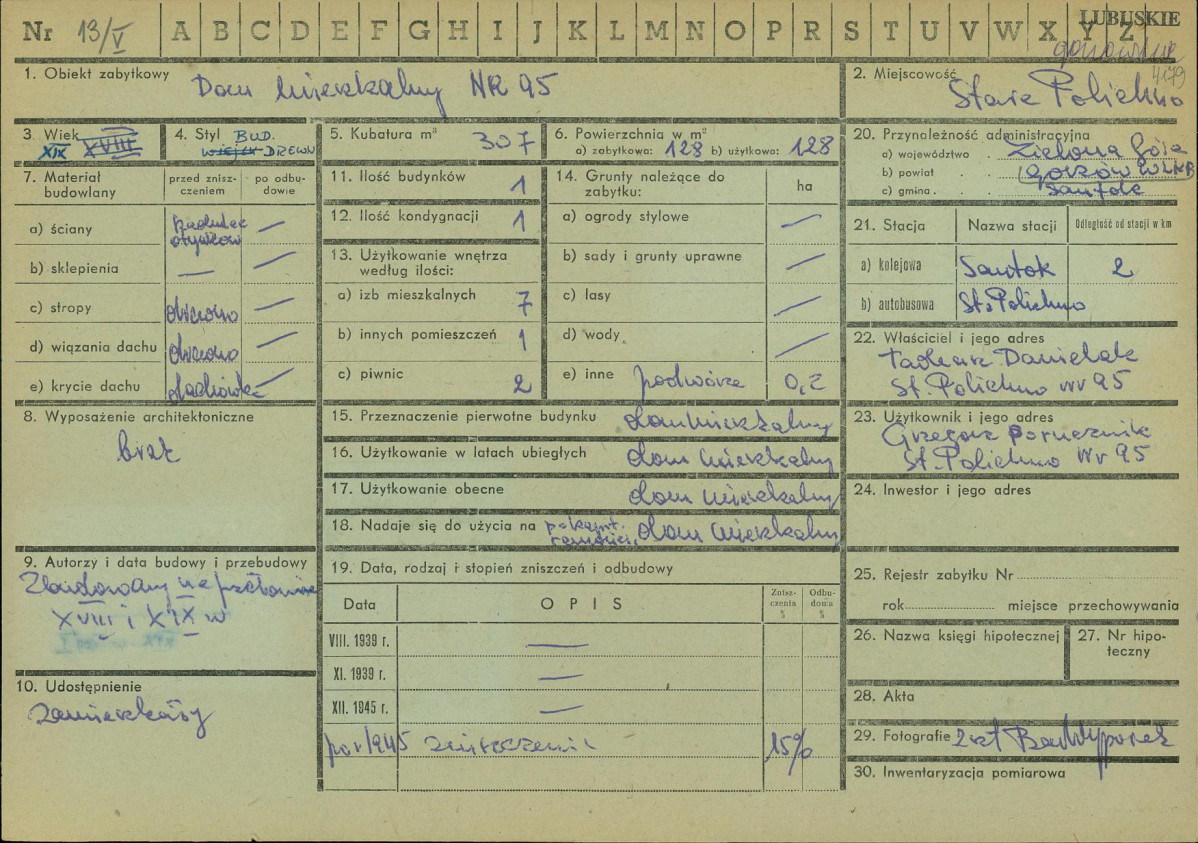 Nr 13/V A B C D E F G H I J K L M N O P R S T U V W X Y Z LUBUSKIE
4179
1. Obiekt zabytkowy Dom mieszkalny NR 95
2. Miejscowość Stare Polichno
3. Wiek XIX XVIII
4. Styl BUD. DREWN
5. Kubatura m³ 307
6. Powierzchnia w m²
a) zabytkowa: 128 b) użytkowa: 128
7. Materiał budowlany
przed zniszczeniem
po odbudowie
a) ściany —
b) sklepienia — —
c) stropy drewno —
d) wiązania dachu drewno —
e) krycie dachu dachówka —
8. Wyposażenie architektoniczne
brak
9. Autorzy i data budowy i przebudowy
Zbudowany na przełomie
XVIII i XIX w
10. Udostępnienie
zamieszkały
11. Ilość budynków 1
12. Ilość kondygnacji 1
13. Użytkowanie wnętrza według ilości:
a) izb mieszkalnych 7
b) innych pomieszczeń 1
c) piwnic 2
14. Grunty należące do zabytku: ha
a) ogrody stylowe —
b) sady i grunty uprawne —
c) lasy —
d) wody —
e) inne podwórze 0,2
15. Przeznaczenie pierwotne budynku dom mieszkalny
16. Użytkowanie w latach ubiegłych dom mieszkalny
17. Użytkowanie obecne dom mieszkalny
18. Nadaje się do użycia na dom mieszkalny
19. Data, rodzaj i stopień zniszczeń i odbudowy
Data OPIS Zniszczenia % Odbudowa %
VIII. 1939 r. —
XI. 1939 r. —
XII. 1945 r. —
po r 1945 zniszczenie 15%
20. Przynależność administracyjna
a) województwo Zielona Góra
b) powiat Gorzów WLKP
c) gmina Santok
21. Stacja Nazwa stacji Odległość od stacji w km
a) kolejowa Santok 2
b) autobusowa St. Polichno
22. Właściciel i jego adres
Tadeusz Danielak
St. Polichno nr 95
23. Użytkownik i jego adres
Grzegorz
St. Polichno Nr 95
24. Inwestor i jego adres
25. Rejestr zabytku Nr
rok miejsce przechowywania
26. Nazwa księgi hipotecznej
27. Nr hipoteczny
28. Akta
29. Fotografie 2 szt
30. Inwentaryzacja pomiarowa